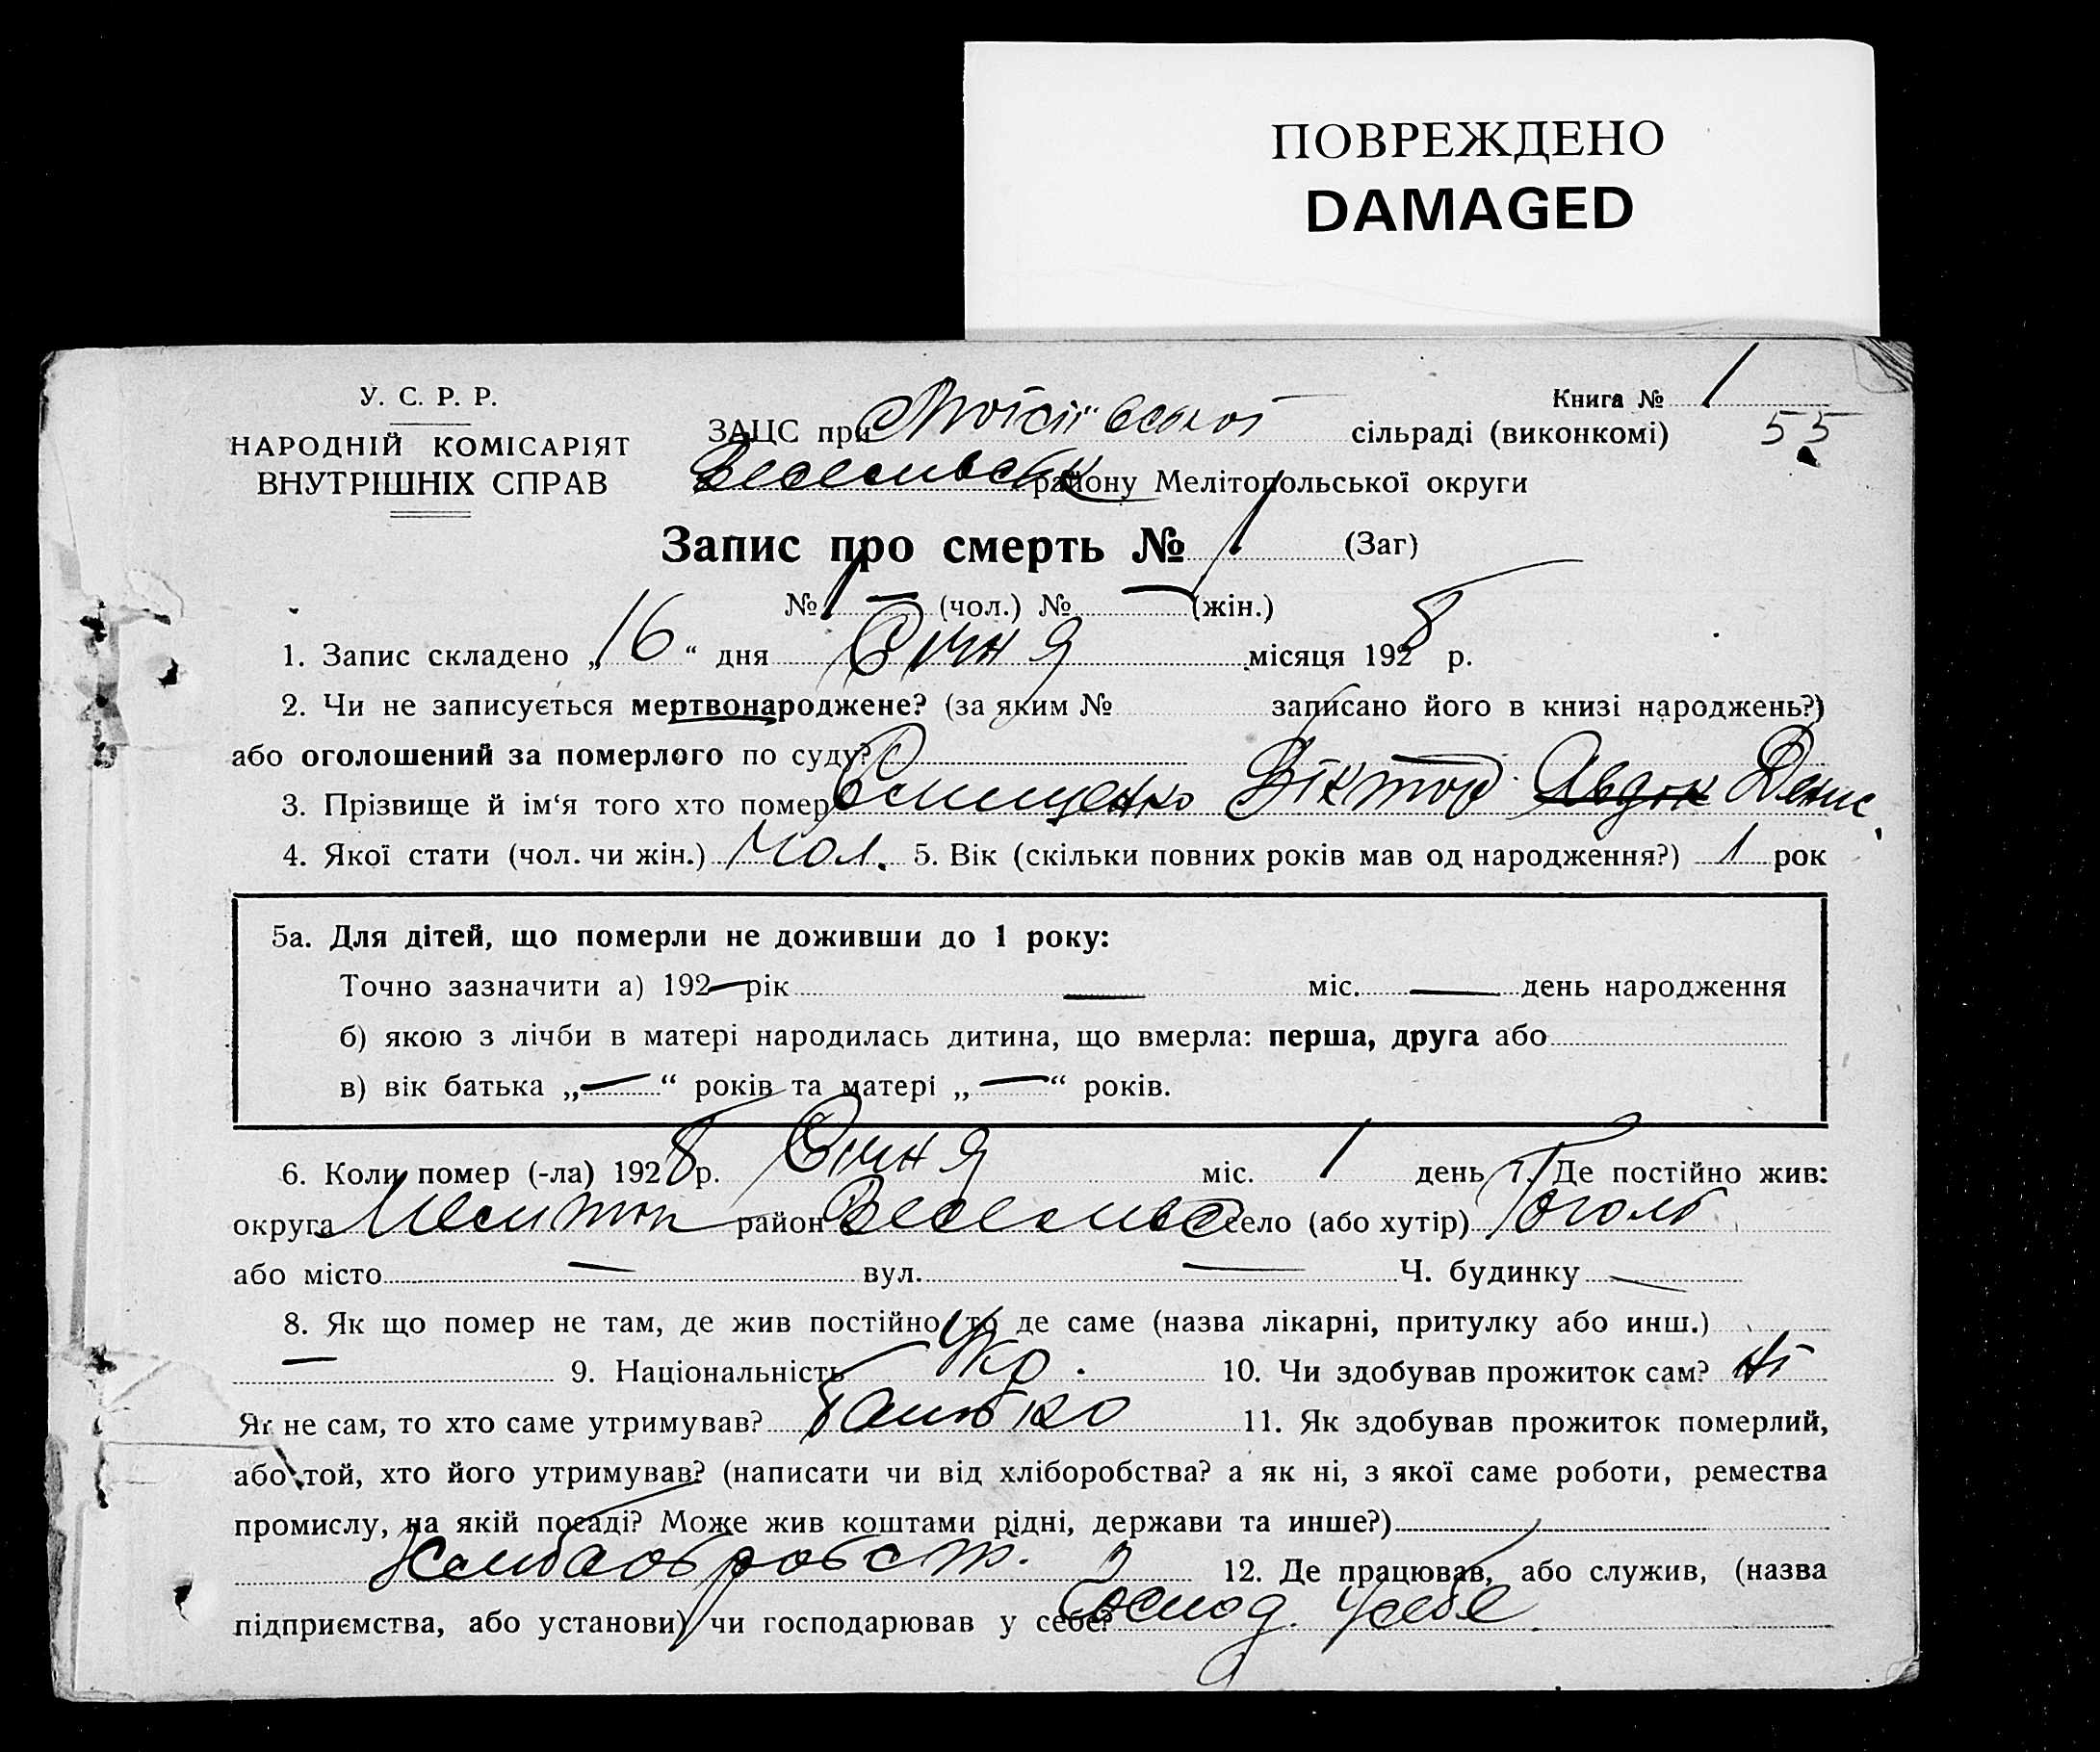 ПОВРЕЖДЕНО
DAMAGED
У. С. Р. Р.
НАРОДНІЙ КОМІСАРІЯТ
ВНУТРІШНІХ СПРАВ
Книга № 1
55
ЗАЦС при сільраді (виконкомі)
Веселівськ району Мелітопольської округи
Запис про смерть № 1 (Заг)
№ 1 — (чол.) № — (жін.)
1. Запис складено „16“ дня Січня місяця 1928 р.
2. Чи не записується мертвонароджене? (за яким № записано його в книзі народжень?)
або оголошений за померлого по суду?
3. Прізвище й ім‘я того хто помер Віктор Денис.
4. Якої стати (чол. чи жін.) Чол. 5. Вік (скільки повних років мав од народження?) 1 рок
5а. Для дітей, що померли не доживши до 1 року:
Точно зазначити а) 192— рік — міс. — день народження
б) якою з лічби в матері народилась дитина, що вмерла: перша, друга або
в) вік батька „—“ років та матері „—“ років.
6. Коли помер (-ла) 1928 р. Січня міс. 1 день 7. Де постійно жив:
округа Мелітоп район Веселівс село (або хутір)
або місто — вул. — Ч. будинку —
8. Як що помер не там, де жив постійно, то де саме (назва лікарні, притулку або инш.)
— 9. Національність Укр. 10. Чи здобував прожиток сам? ні
Як не сам, то хто саме утримував? Батько 11. Як здобував прожиток померлий,
або той, хто його утримував? (написати чи від хліборобства? а як ні, з якої саме роботи, ремества
промислу, на якій посаді? Може жив коштами рідні, держави та инше?)
12. Де працював, або служив, (назва
підприємства, або установи) чи господарював у себе? Господ. у себе